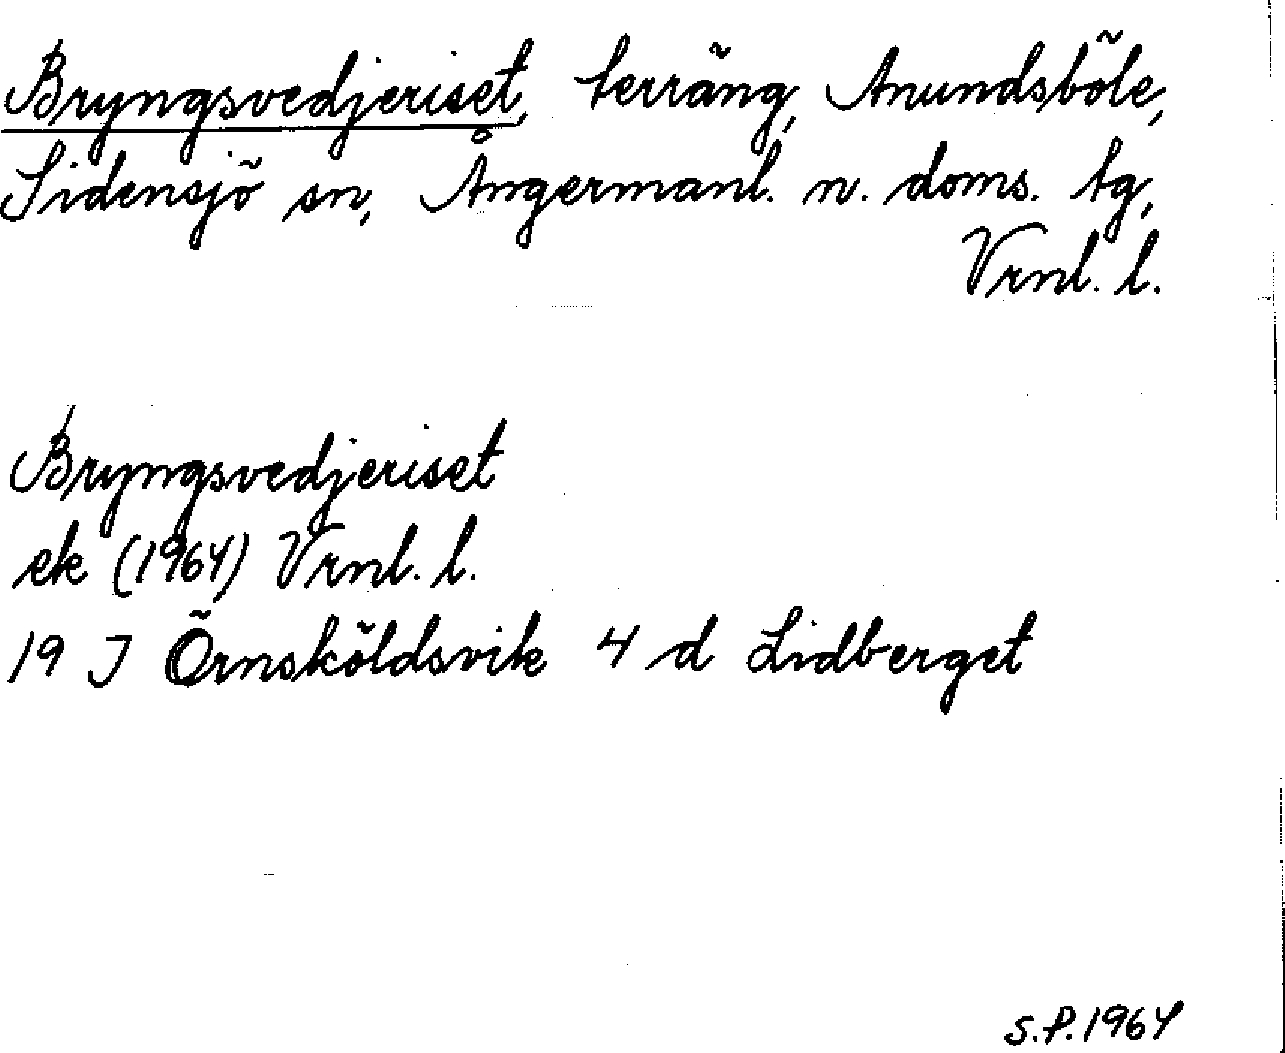 Bryngsvedjeriset, terräng, Anundsböle,
Sidensjö sn, Ångermanl. n. doms. tg,
Vrnl. l.
Bryngsvedjeriset
ek (1964) Vrnl. l.
19 J Örnsköldsvik 4 d Lidberget
S.P. 1964